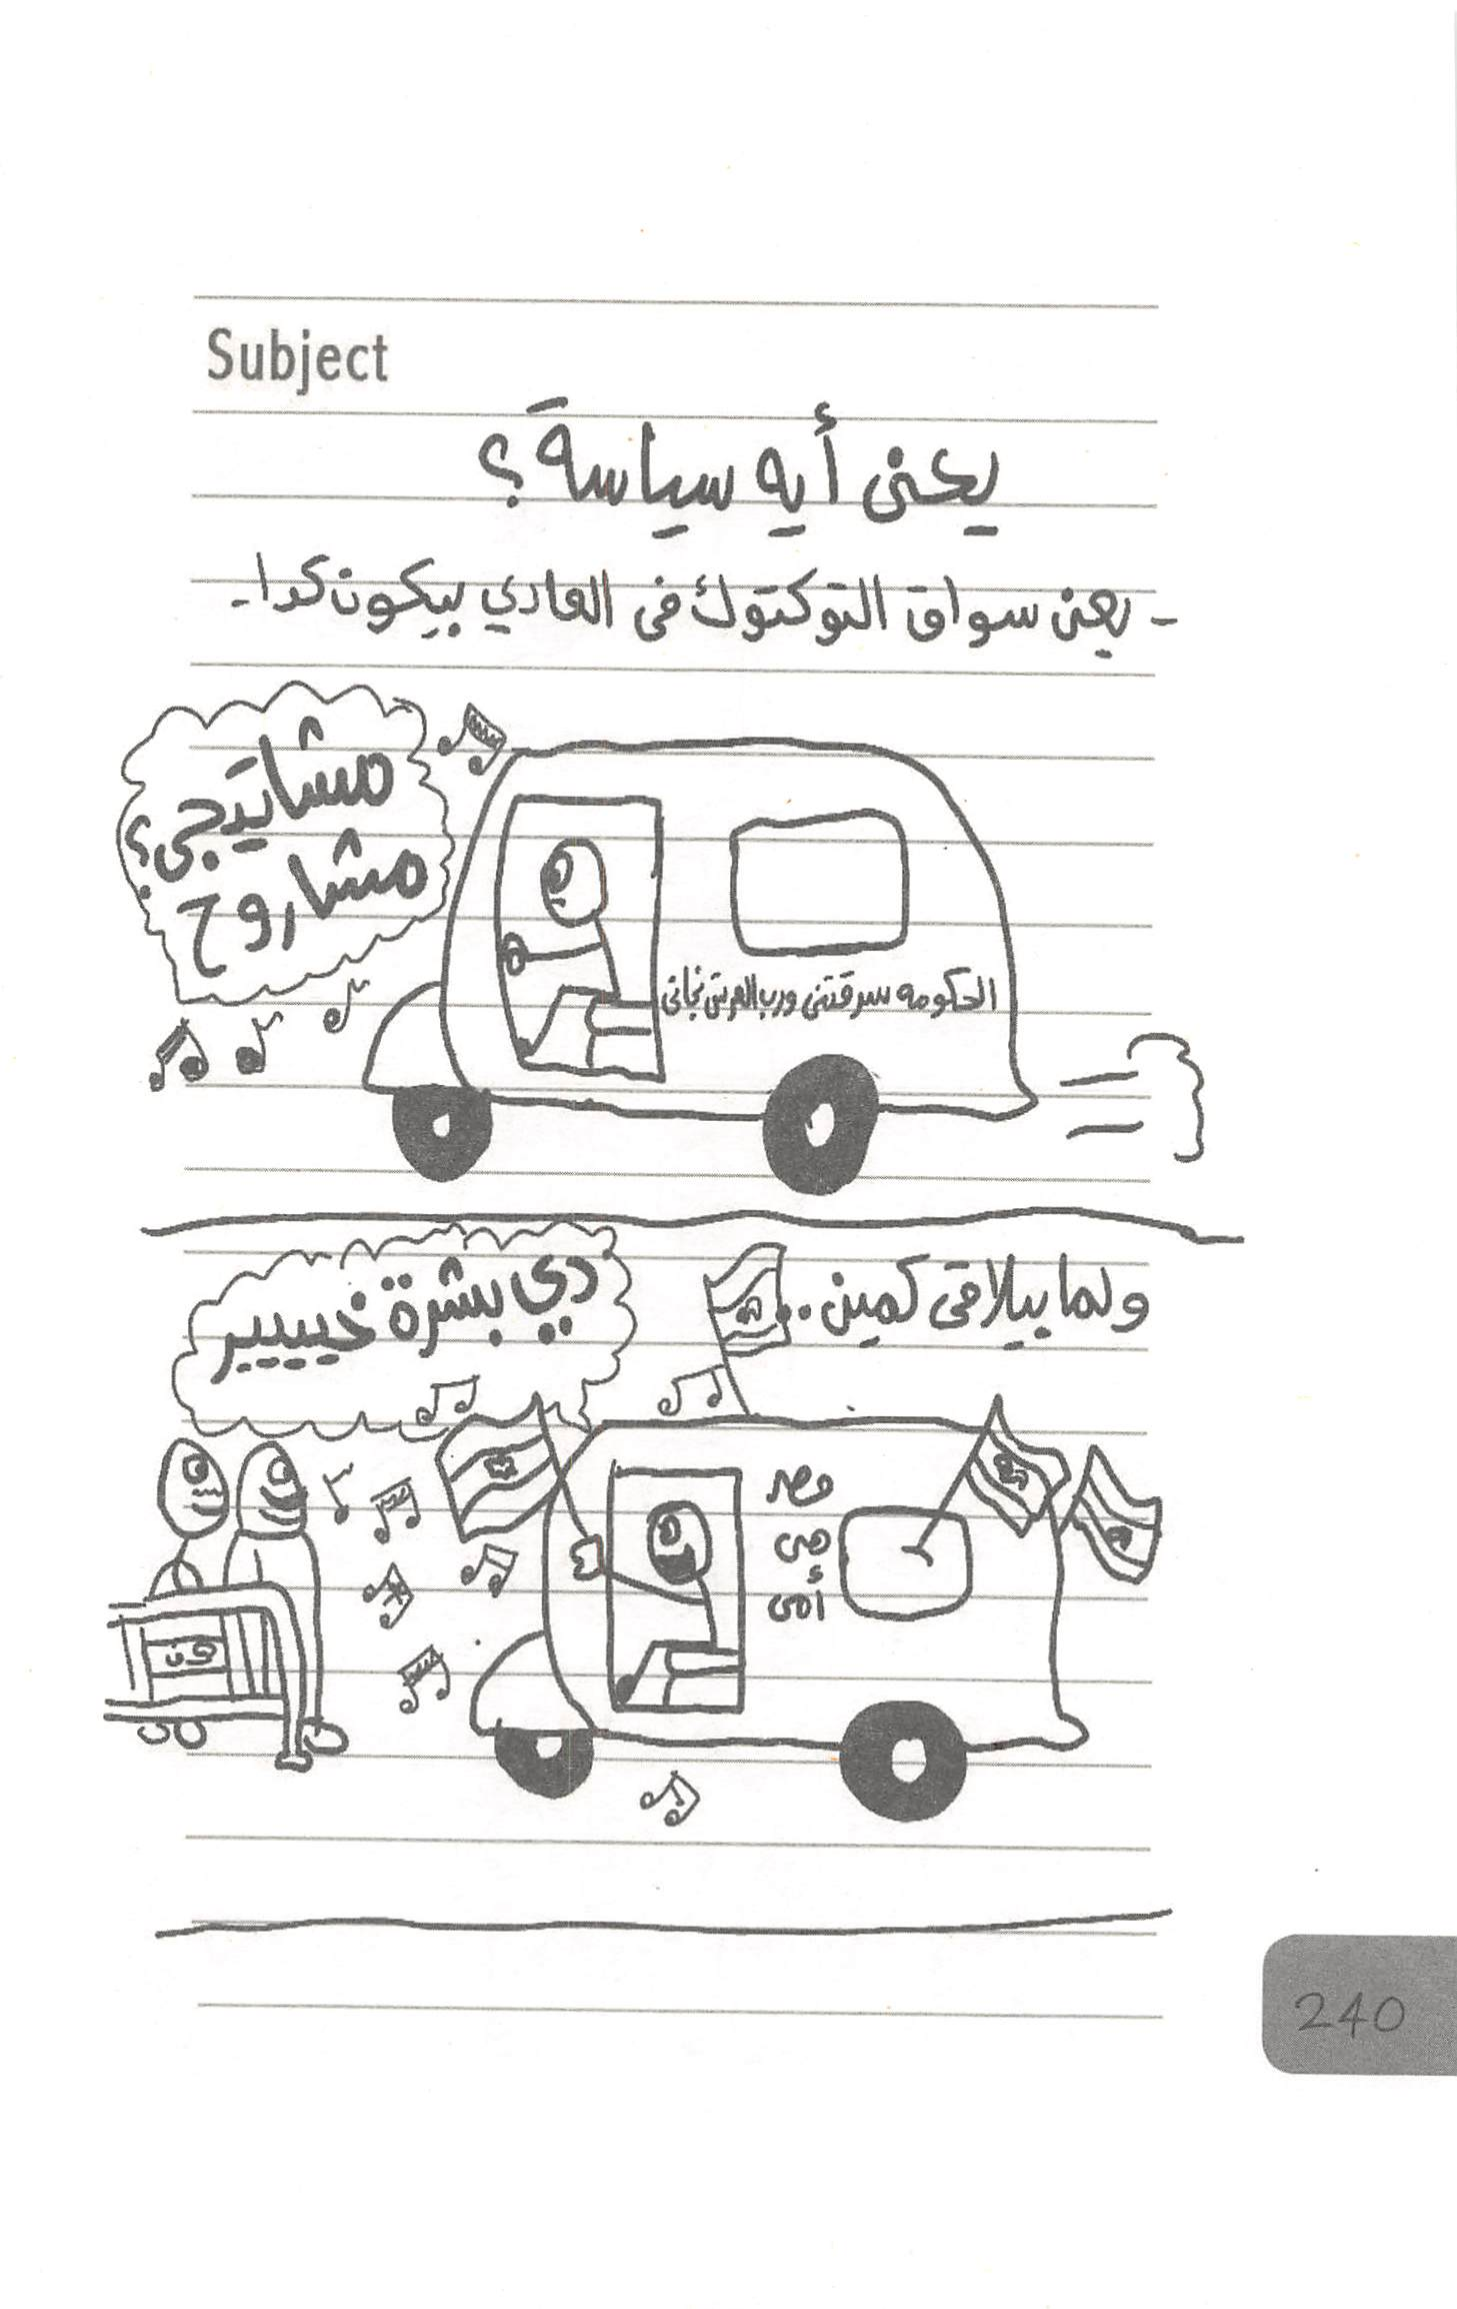 Subject
يعنى أيه سياسة ؟
- يعنى سواق التوكتوك فى العادي بيكون كدا..
مشاتيجى ؟
مشاروح
الحكومه سرقتنى ورب العرش نجانى
ولما بيلاقى كمين ..
دي بشرة خيييير
مصر
هى
أمى
240